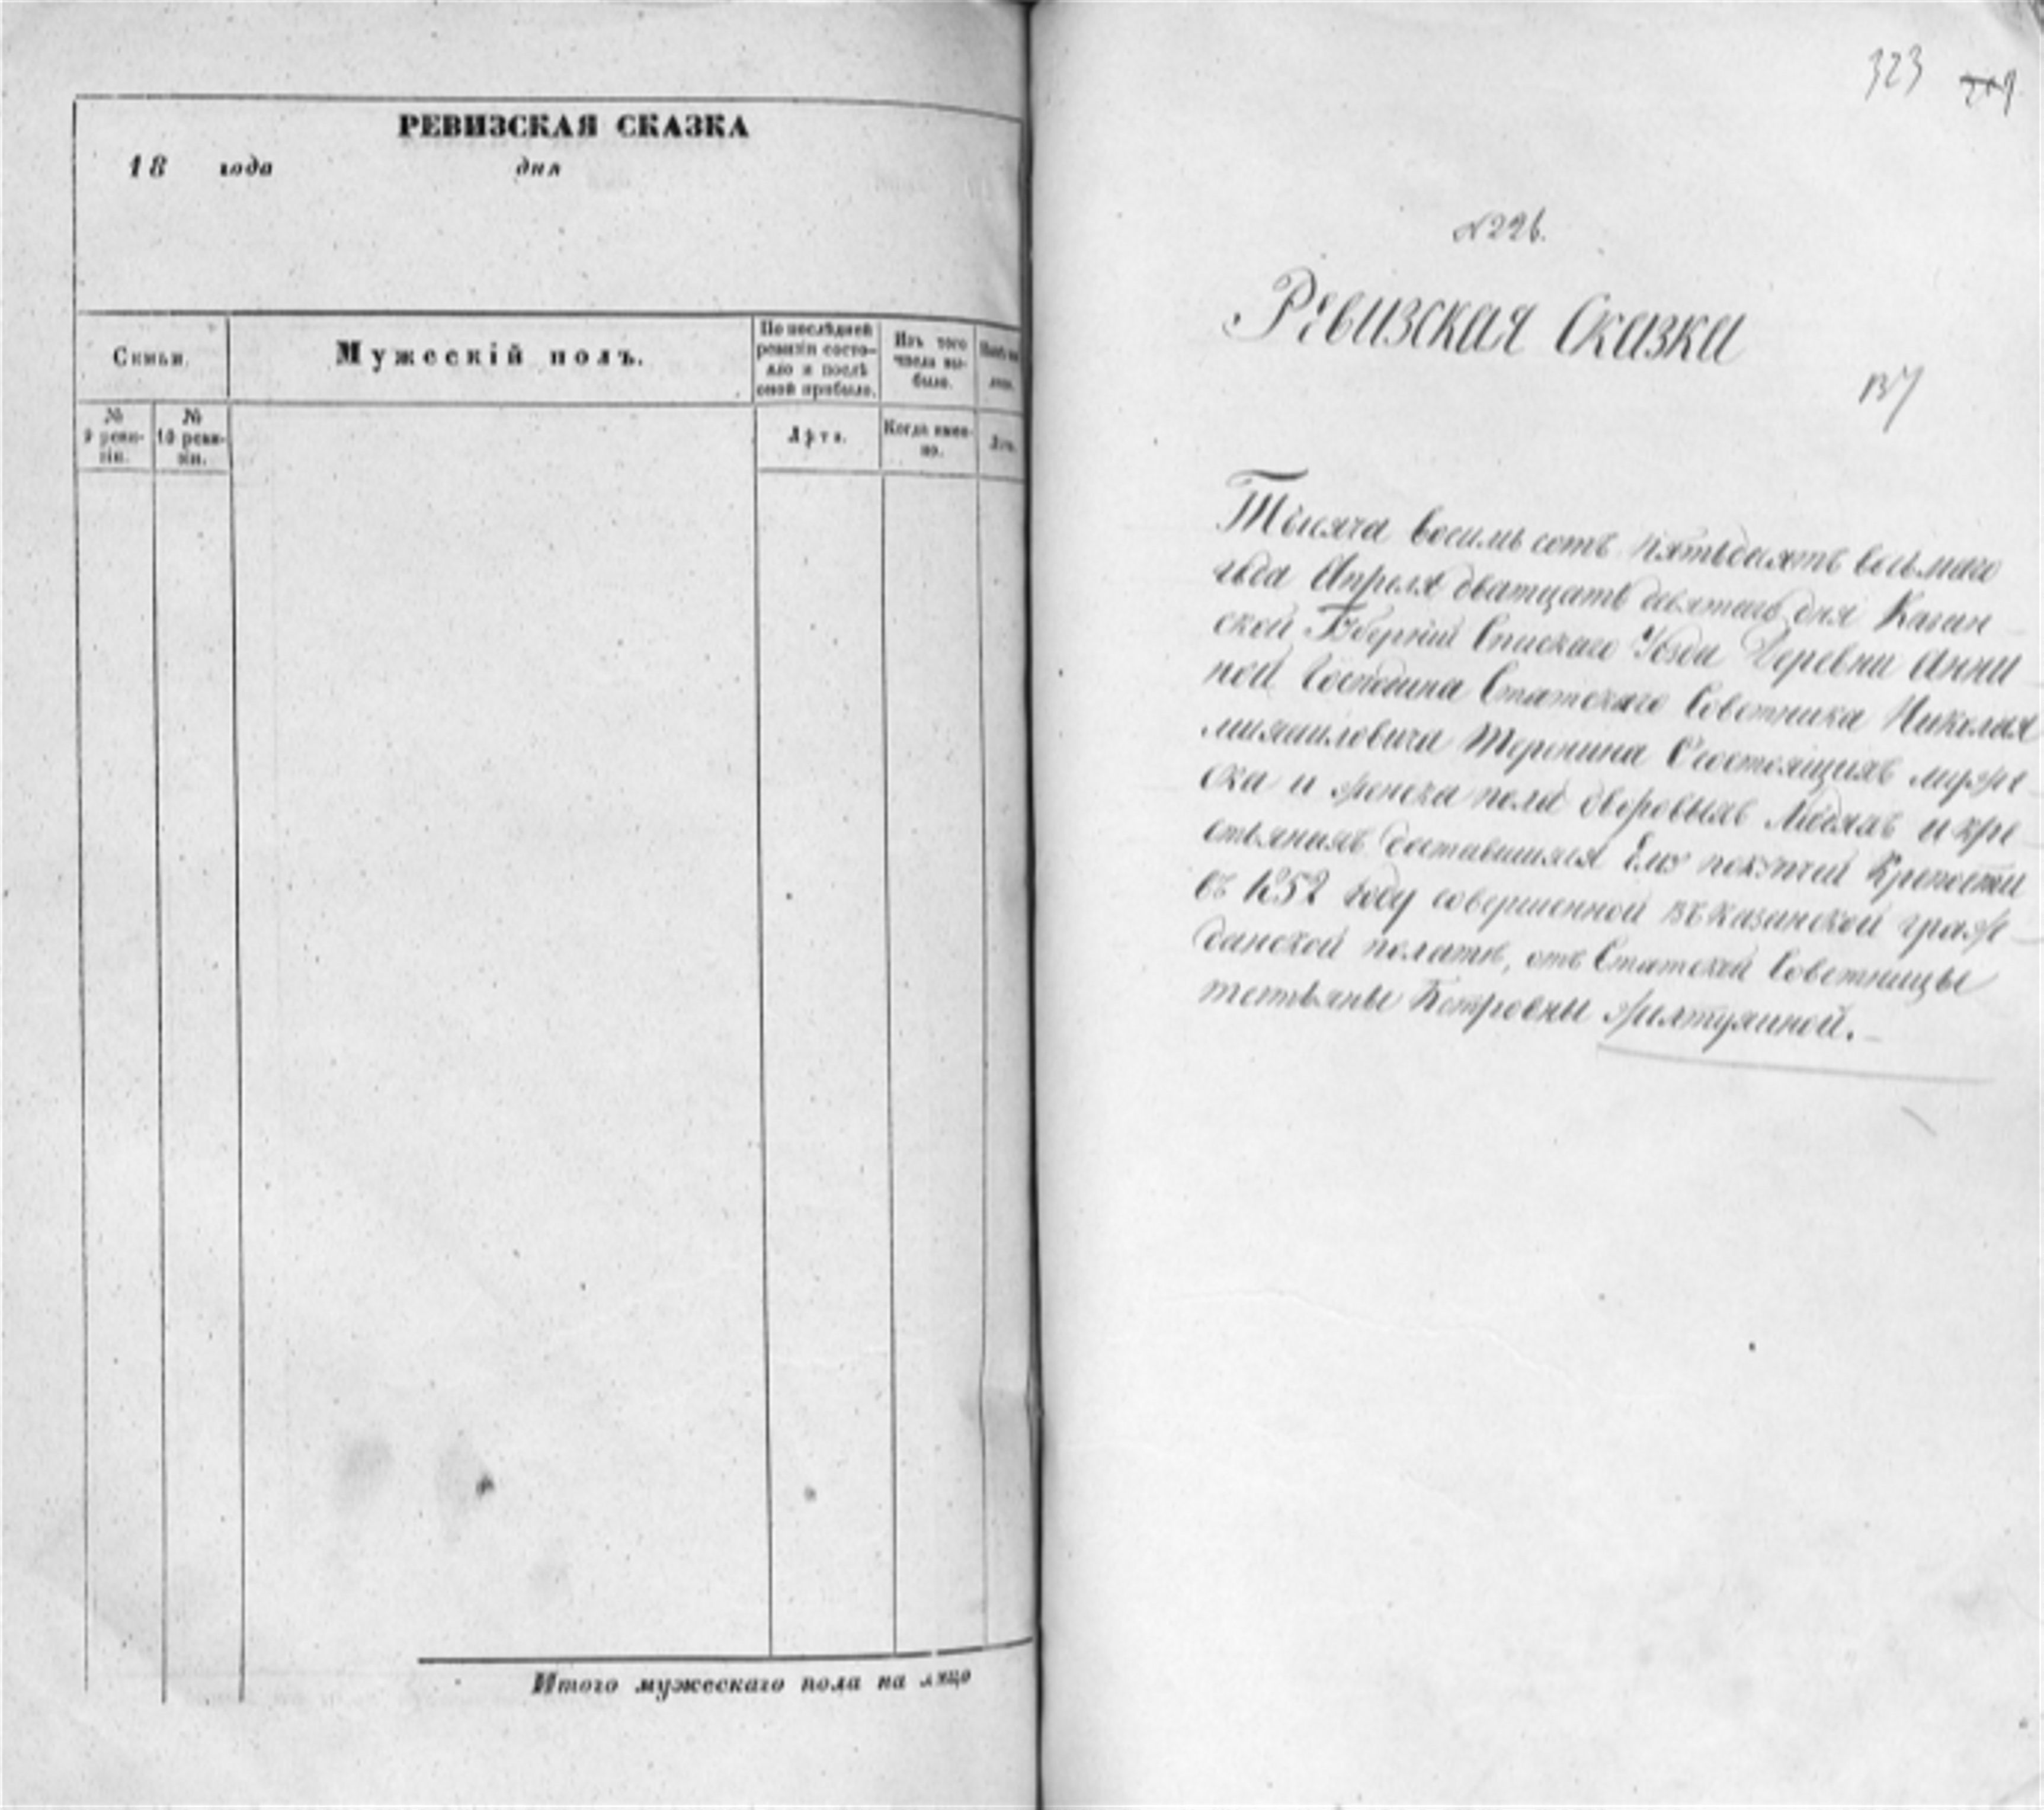 РЕВИЗСКАЯ СКАЗКА
18 года дня
Семьи.
Мужескій полъ.
По послѣдней ревизіи состояло и послѣ оной прибыло.
Изъ того числа выбыло.
№ 9 ревизіи.
№ 10 ревизіи.
Лѣта.
Когда именно.
Итого мужескаго пола на лицо
323
№ 226.
Ревизская Сказка
Тысяча восимь сотъ пятьдесятъ восьмаго
года Апреля дватцать девятаго дня Казан
ской Губерніи Спискаго Уезда Деревни Анни
ной Господина Статскаго Советника Николая
михаиловича Теренина О состоящихъ муже
ска и женска пола дворовыхъ Людяхъ и кре
стьянехъ доставшихся Ему покупчей Крепости
въ 1852 году совершенной въ казанской граж
данской полатѣ, отъ Статской Советницы
татьяны Петровны желтухиной.